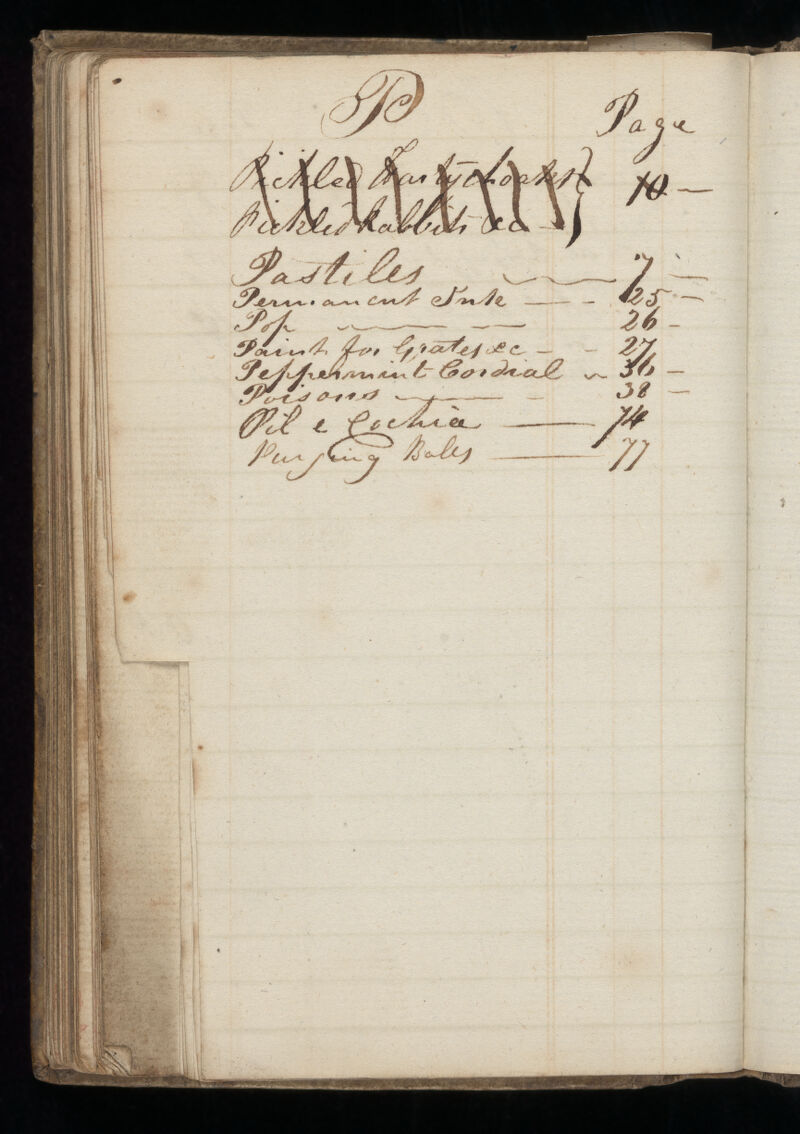 P
Page
Pickled Hartychoaks } 10 —
Pickled Rabbits &c — }
Pastiles 7 —
Permanent Ink — - 25 —
Pop — — 26 -
Paint for Grates &c - - 27
Peppermint Cordial 36 —
Poisons — - 38 —
Pil e Cochiæ — 74
Purging Balls — 77